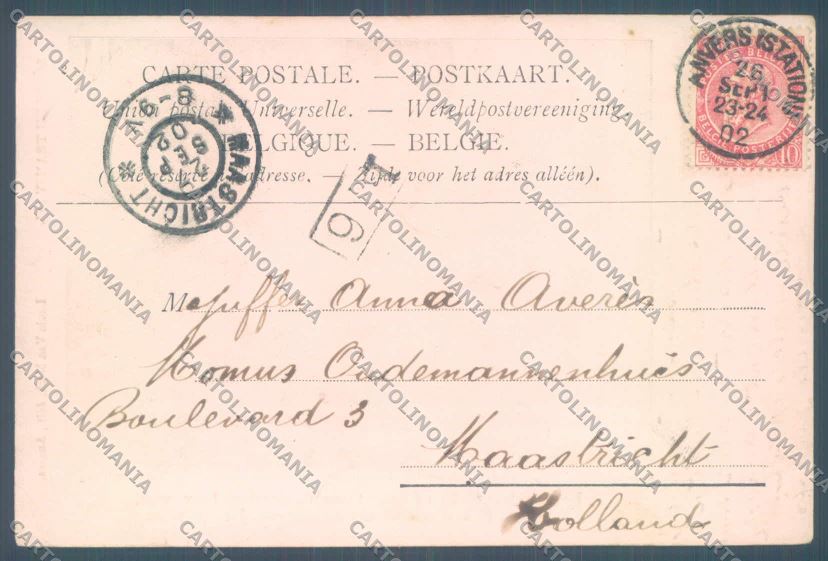 CARTE POSTALE. — POSTKAART.
Union postale Universelle. — Wereldpostvereeniging.
BELGIQUE. — BELGIE.
(Côté réservé à l'adresse. — Zijde voor het adres alléén).
ANVERS (STATION)
26
SEPT
23-24
02
POSTES BELGIQUE
10
BELGIE POSTERIJEN
MAASTRICHT
6-8
SEP
02
1
6
Mejuffer Anna Averès
Momus Oudemannenhuis
Boulevard 3
Maastricht
Holland
CARTOLINOMANIA